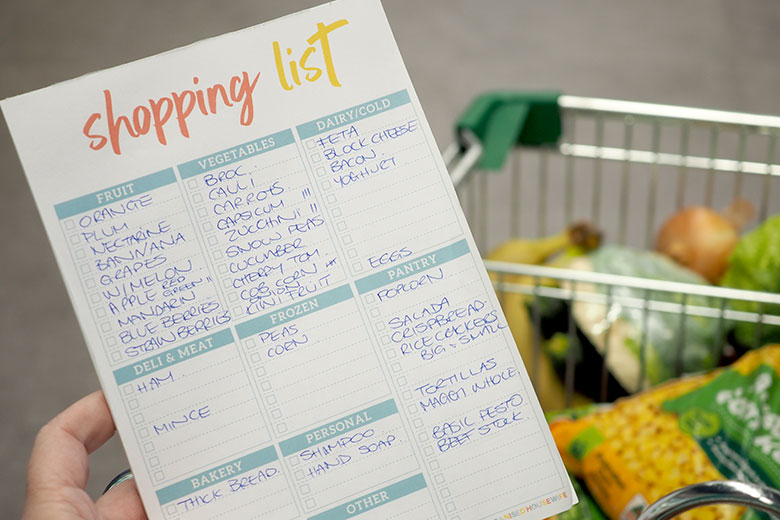 shopping list
FRUIT
ORANGE
PLUM
NECTARINE
BANANA
GRAPES
W/MELON
APPLE RED GREEN "
MANDARIN
BLUE BERRIES
STRAWBERRIES
VEGETABLES
BROC.
CAULI
CARROTS
CAPSICUM !!!
ZUCCHINI !!
SNOW PEAS
CUCUMBER
CHERRY TOM
COB CORN
KIWI FRUIT
DAIRY/COLD
FETA
BLOCK CHEESE
BACON
YOGHURT
EGGS
DELI & MEAT
HAM.
MINCE
FROZEN
PEAS
CORN
PANTRY
POPCORN
SALADA
CRISPBREAD
RICE CRACKERS
BIG & SMALL
TORTILLAS
MAGGI WHOLE
BASIC PESTO
BEEF STOCK
BAKERY
THICK BREAD.
PERSONAL
SHAMPOO
HAND SOAP.
OTHER
ANISED HOUSEWIFE